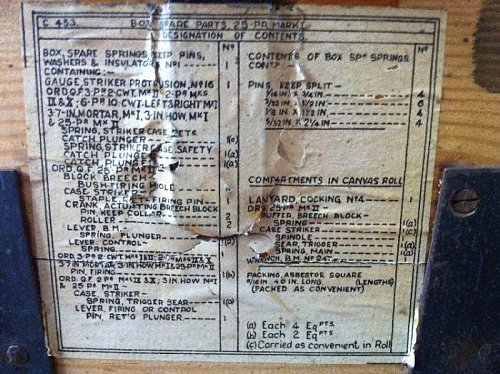 C 453. BOX SPARE PARTS 25-PR MARK I
DESIGNATION OF CONTENTS
Nº
BOX, SPARE SPRINGS KEEP PINS,
WASHERS & INSULATOR Nº1 1
CONTAINING:-
GAUGE, STRIKER PROTRUSION, Nº16 1
ORD. Q.F. 3-PR 2-CWT. MKII 2-PR MKS
IX & X; 6-PR 10-CWT-LEFT & RIGHT MKI
3·7-IN. MORTAR, MKI, 3·7-IN. HOW. MKI
& 25-PR MKII
SPRING, STRIKER CASE, SETG
CATCH PLUNGER 1(a)
SPRING, STRIKER CASE, SAFETY
CATCH PLUNGER 1(a)
CATCH PLUNGER 1(a)
ORD. Q.F. 25-PR MKII
BLOCK BREECH
BUSH-FIRING HOLE
CASE STRIKER
STAPLE, RETG FIRING PIN 1
CRANK ACTUATING BREECH BLOCK
PIN, KEEP COLLAR 2
ROLLER 2
LEVER, B.M.
SPRING, PLUNGER
LEVER, CONTROL
SPRING
ORD. 3-PR 2-CWT. MKII 2-PR
3·7-IN. MORTAR, MKI, 3·7-IN. HOW. MKI & 25-PR MKII
PIN, FIRING 1(b)
ORD. Q.F. 2-PR MKS IX & X, 3·7-IN. HOW. MKI
& 25-PR MKII
CASE STRIKER
SPRING, TRIGGER SEAR 1(a)
LEVER, FIRING OR CONTROL
PIN, RETG PLUNGER 1
Nº
CONTENTS OF BOX SPR SPRINGS
CONTD
PINS, KEEP SPLIT
1/16 IN X 3/4 IN. 4
3/32 IN X 1 1/2 IN. 6
1/8 IN X 1 1/2 IN. 4
5/32 IN X 2 1/4 IN. 4
COMPARTMENTS IN CANVAS ROLL
LANYARD, COCKING Nº4 1
ORD. 25-PR MKII
BUFFER, BREECH BLOCK
SPRING 1
CASE STRIKER 1(a)
SPINDLE 1(c)
SEAR, TRIGGER 1
SPRING, MAIN 1
WRENCH, B.M. Nº247 1
PACKING, ASBESTOS SQUARE
5/16 IN. 40 IN. LONG (LENGTHS) 1
(PACKED AS CONVENIENT)
(a) Each 4 Eqpts
(b) Each 2 Eqpts
(c) Carried as convenient in Roll